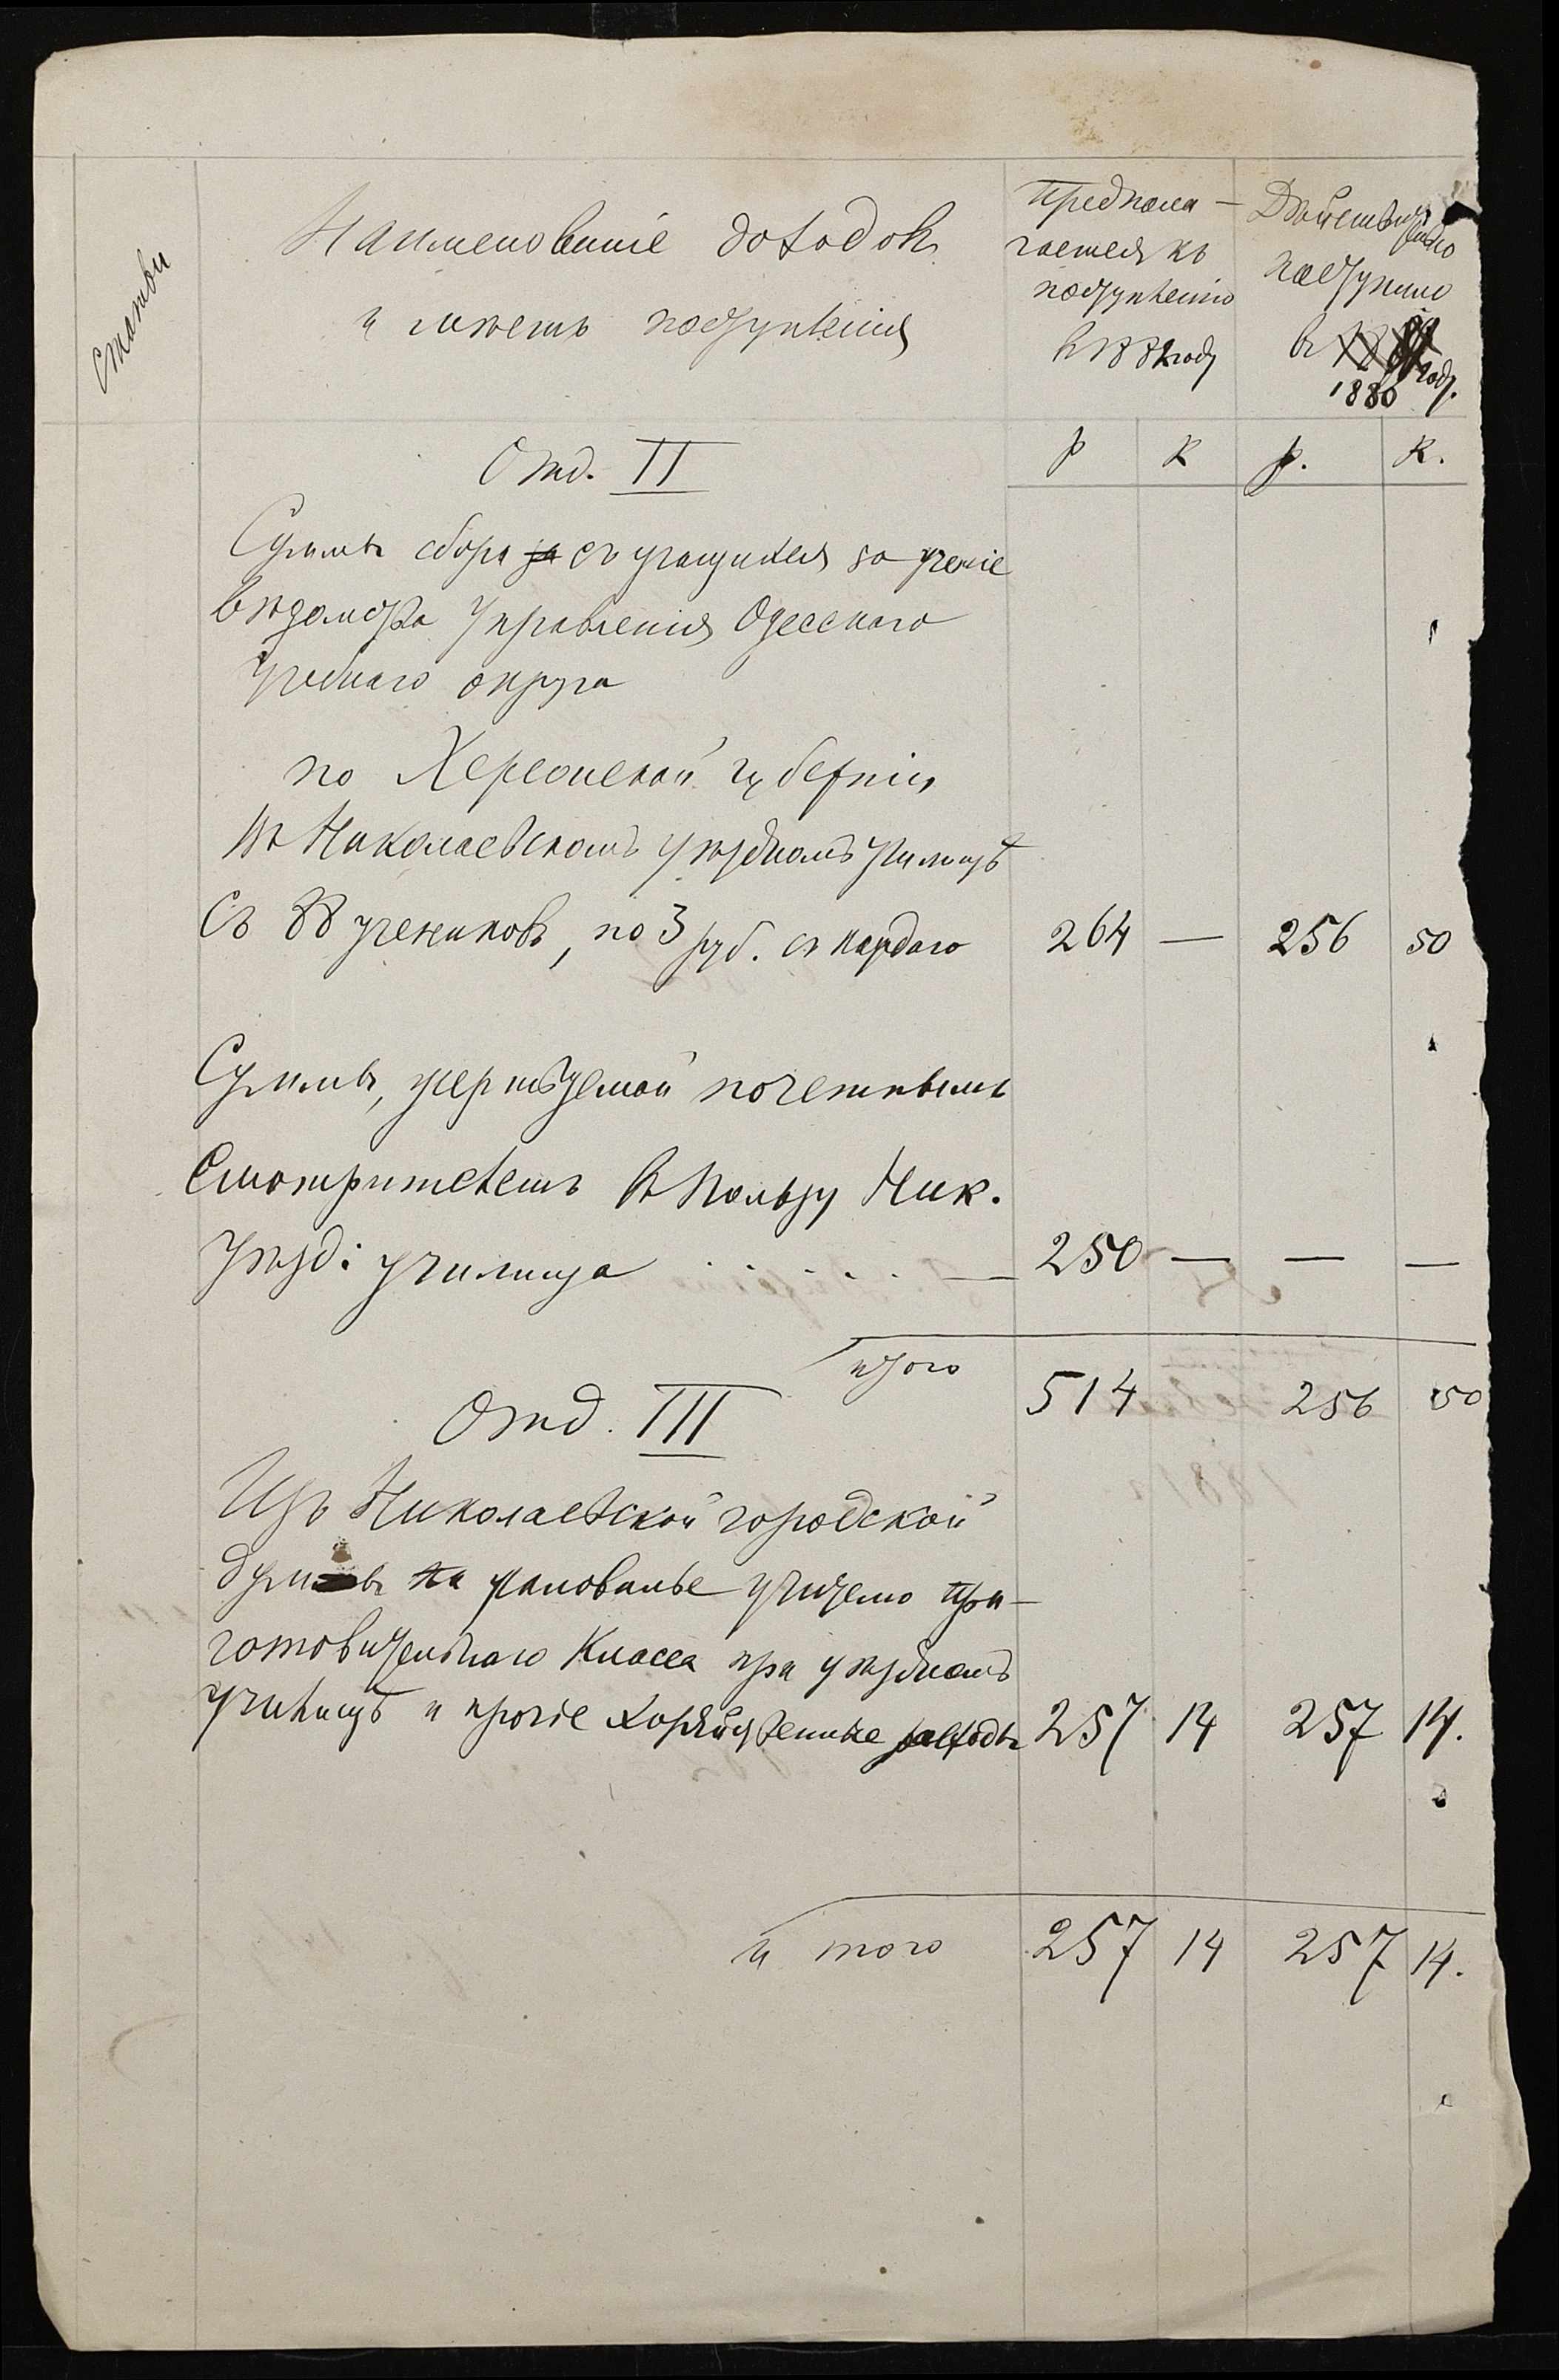 Статьи
Наименованіе доходовъ
и смѣтъ поступленія
Предпола-
гается къ
поступленію
въ 1882 году
Дѣйствительно
поступило
въ
1880 году.
р к р. к.
Отд. II
Суммы сбора за съ учащихся за ученіе
вѣдомства Управленія Одесскаго
учебнаго округа
по Херсонской губерніи
Въ Николаевскомъ уѣздномъ училищѣ
Съ 88 учениковъ, по 3 руб. съ каждаго 264 — 256 50
Суммы, жертвуемой почетнымъ
Смотрителемъ въ пользу Ник.
уѣзд: училища . . . . . — 250 — — —
итого 514 256 50
Отд. III
Изъ Николаевской городской
думы на жалованье учителю при-
готовительнаго класса при уѣздномъ
училищѣ и прочіе хозяйственные расходы 257 14 257 14.
и того 257 14 257 14.